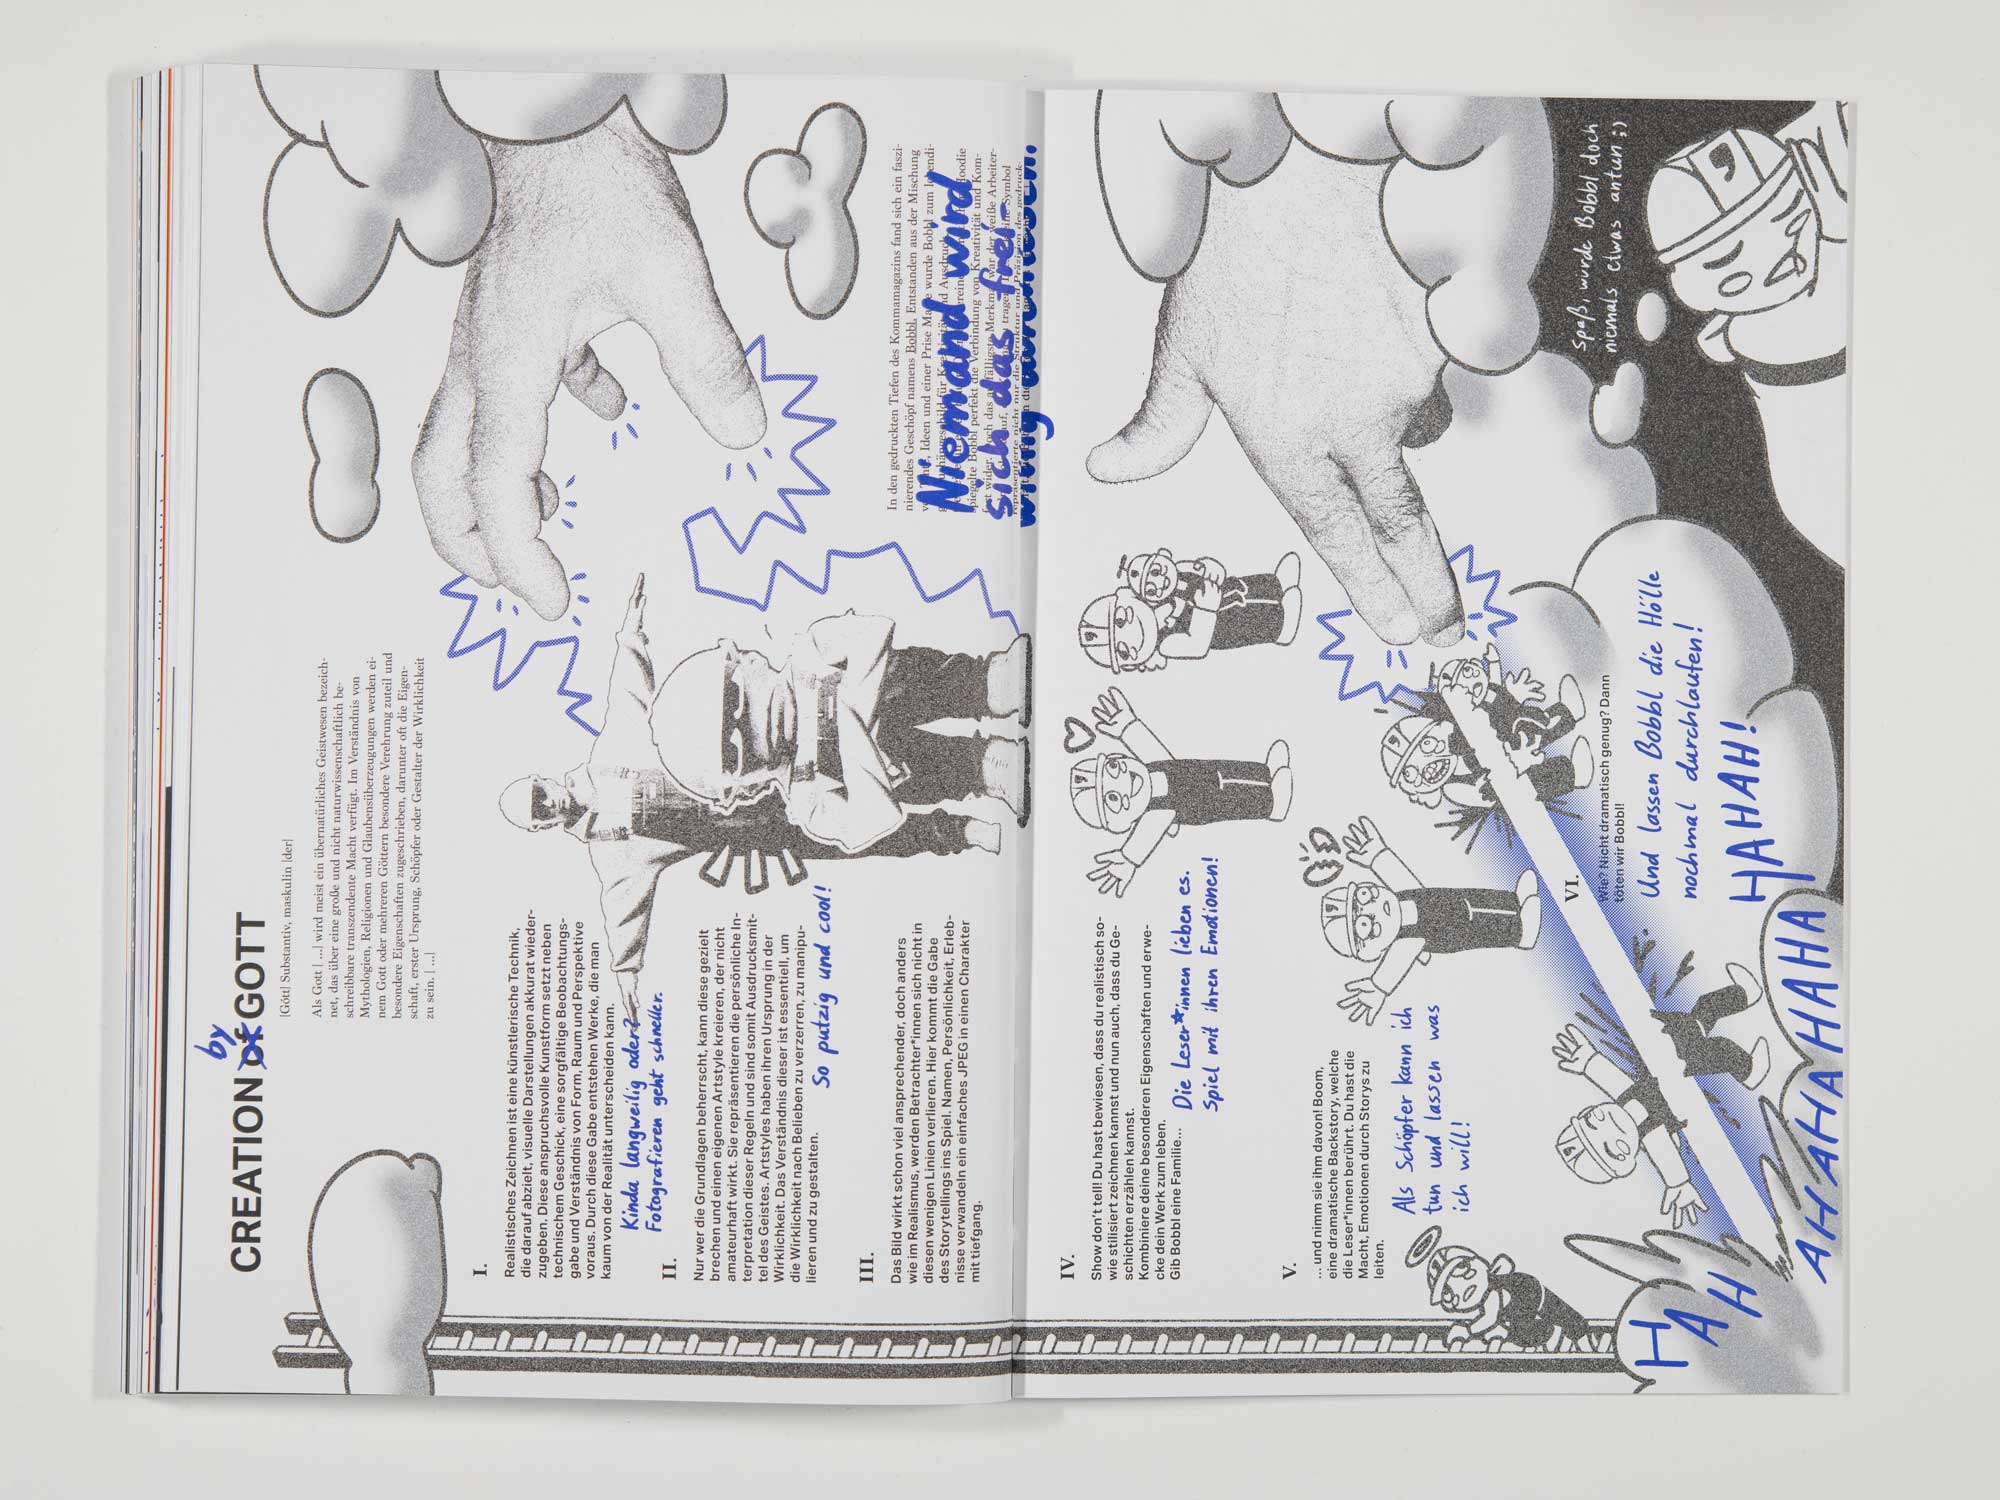 by
CREATION of GOTT
[Gótt] Substantiv, maskulin [der]
Als Gott [ ...] wird meist ein übernatürliches Geistwesen bezeich-
net, das über eine große und nicht naturwissenschaftlich be-
schreibbare transzendente Macht verfügt. Im Verständnis von
Mythologien, Religionen und Glaubensüberzeugungen werden ei-
nem Gott oder mehreren Göttern besondere Verehrung zuteil und
besondere Eigenschaften zugeschrieben, darunter oft die Eigen-
schaft, erster Ursprung, Schöpfer oder Gestalter der Wirklichkeit
zu sein. [ ...]
I.
Realistisches Zeichnen ist eine künstlerische Technik,
die darauf abzielt, visuelle Darstellungen akkurat wieder-
zugeben. Diese anspruchsvolle Kunstform setzt neben
technischem Geschick, eine sorgfältige Beobachtungs-
gabe und Verständnis von Form, Raum und Perspektive
voraus. Durch diese Gabe entstehen Werke, die man
kaum von der Realität unterscheiden kann.
Kinda langweilig oder?
Fotografieren geht schneller.
II.
Nur wer die Grundlagen beherrscht, kann diese gezielt
brechen und einen eigenen Artstyle kreieren, der nicht
amateurhaft wirkt. Sie repräsentieren die persönliche In-
terpretation dieser Regeln und sind somit Ausdrucksmit-
tel des Geistes. Artstyles haben ihren Ursprung in der
Wirklichkeit. Das Verständnis dieser ist essentiell, um
die Wirklichkeit nach Belieben zu verzerren, zu manipu-
lieren und zu gestalten.
So putzig und cool!
III.
Das Bild wirkt schon viel ansprechender, doch anders
wie im Realismus, werden Betrachter*innen sich nicht in
diesen wenigen Linien verlieren. Hier kommt die Gabe
des Storytellings ins Spiel. Namen, Persönlichkeit, Erleb-
nisse verwandeln ein einfaches JPEG in einen Charakter
mit tiefgang.
In den gedruckten Tiefen des Kommamagazins fand sich ein faszi-
nierendes Geschöpf namens Bobbl. Entstanden aus der Mischung
Ideen und einer Prise Ma wurde Bobbl zum lebendi-
für Ausdruck
spiegelte Bobbl perfekt die Verbindung von Kreativität und Kom-
wider. Doch das auffälligste Merkmal war der weiße Arbeiter-
Symbol
repräsentierte nicht nur die Struktur und Präzision des gedruck-
Niemand wird
sich das frei-
willig durchlesen.
IV.
Show don't tell! Du hast bewiesen, dass du realistisch so-
wie stilisiert zeichnen kannst und nun auch, dass du Ge-
schichten erzählen kannst.
Kombiniere deine besonderen Eigenschaften und erwe-
cke dein Werk zum leben.
Gib Bobbl eine Familie...
Die Leser*innen lieben es.
Spiel mit ihren Emotionen!
V.
... und nimm sie ihm davon! Boom,
eine dramatische Backstory, welche
die Leser*innen berührt. Du hast die
Macht, Emotionen durch Storys zu
leiten.
Als Schöpfer kann ich
tun und lassen was
ich will!
VI.
Wie? Nicht dramatisch genug? Dann
töten wir Bobbl!
Und lassen Bobbl die Hölle
nochmal durchlaufen!
HAHAH!
HAH
AHAHAHAHAHA
Spaß, wurde Bobbl doch
niemals etwas antun ;)